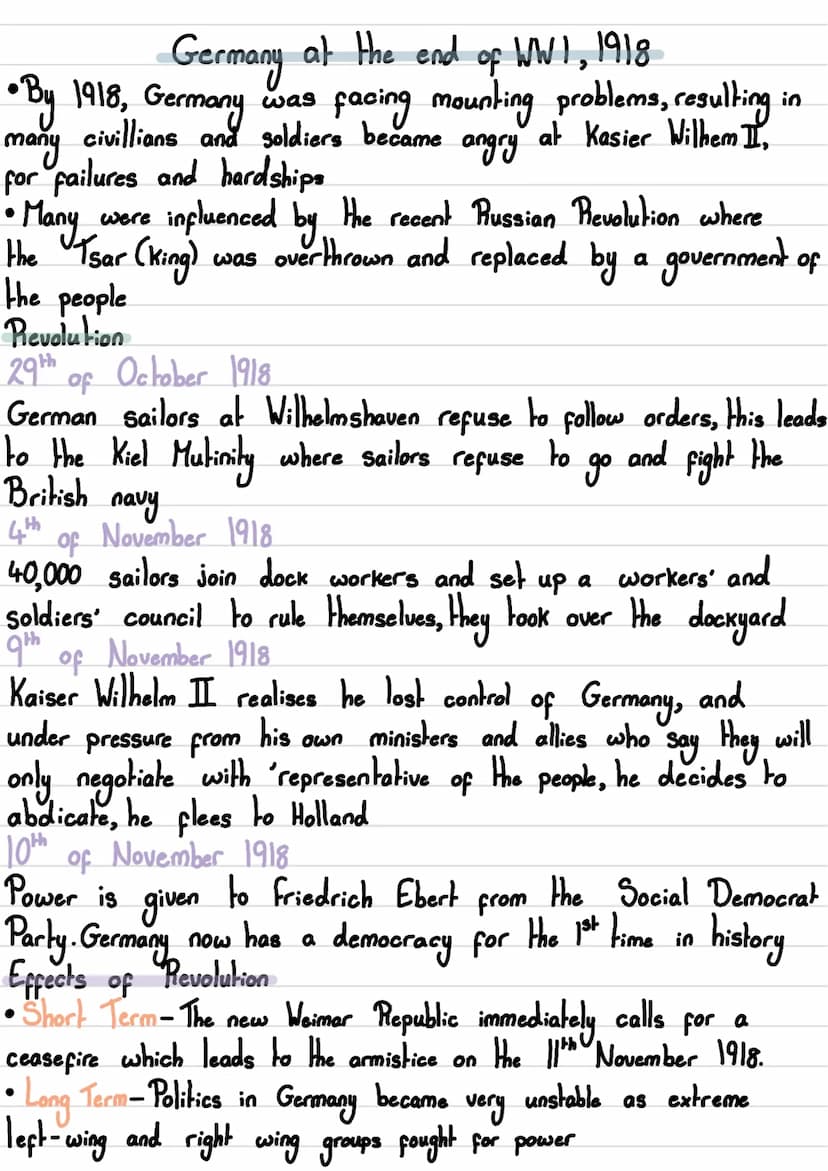 Germany at the end of WW1, 1918
• By 1918, Germany was facing mounting problems, resulting in
many civillians and soldiers became angry at Kasier Wilhem II,
for failures and hardships
• Many were influenced by the recent Russian Revolution where
the Tsar (King) was overthrown and replaced by a government of
the people
Revolution
29th of October 1918
German sailors at Wilhelmshaven refuse to follow orders, this leads
to the Kiel Mutinity where sailors refuse to go and fight the
British navy
4th of November 1918
40,000 sailors join dock workers and set up a workers' and
soldiers' council to rule themselves, they took over the dockyard
9th of November 1918
Kaiser Wilhelm II realises he lost control of Germany, and
under pressure from his own ministers and allies who say they will
only negotiate with 'representative of the people, he decides to
abdicate, he flees to Holland
10th of November 1918
Power is given to Friedrich Ebert from the Social Democrat
Party. Germany now has a democracy for the 1st time in history
Effects of Revolution
• Short Term - The new Weimar Republic immediately calls for a
ceasefire which leads to the armistice on the 11th November 1918.
• Long Term - Politics in Germany became very unstable as extreme
left-wing and right wing groups fought for power